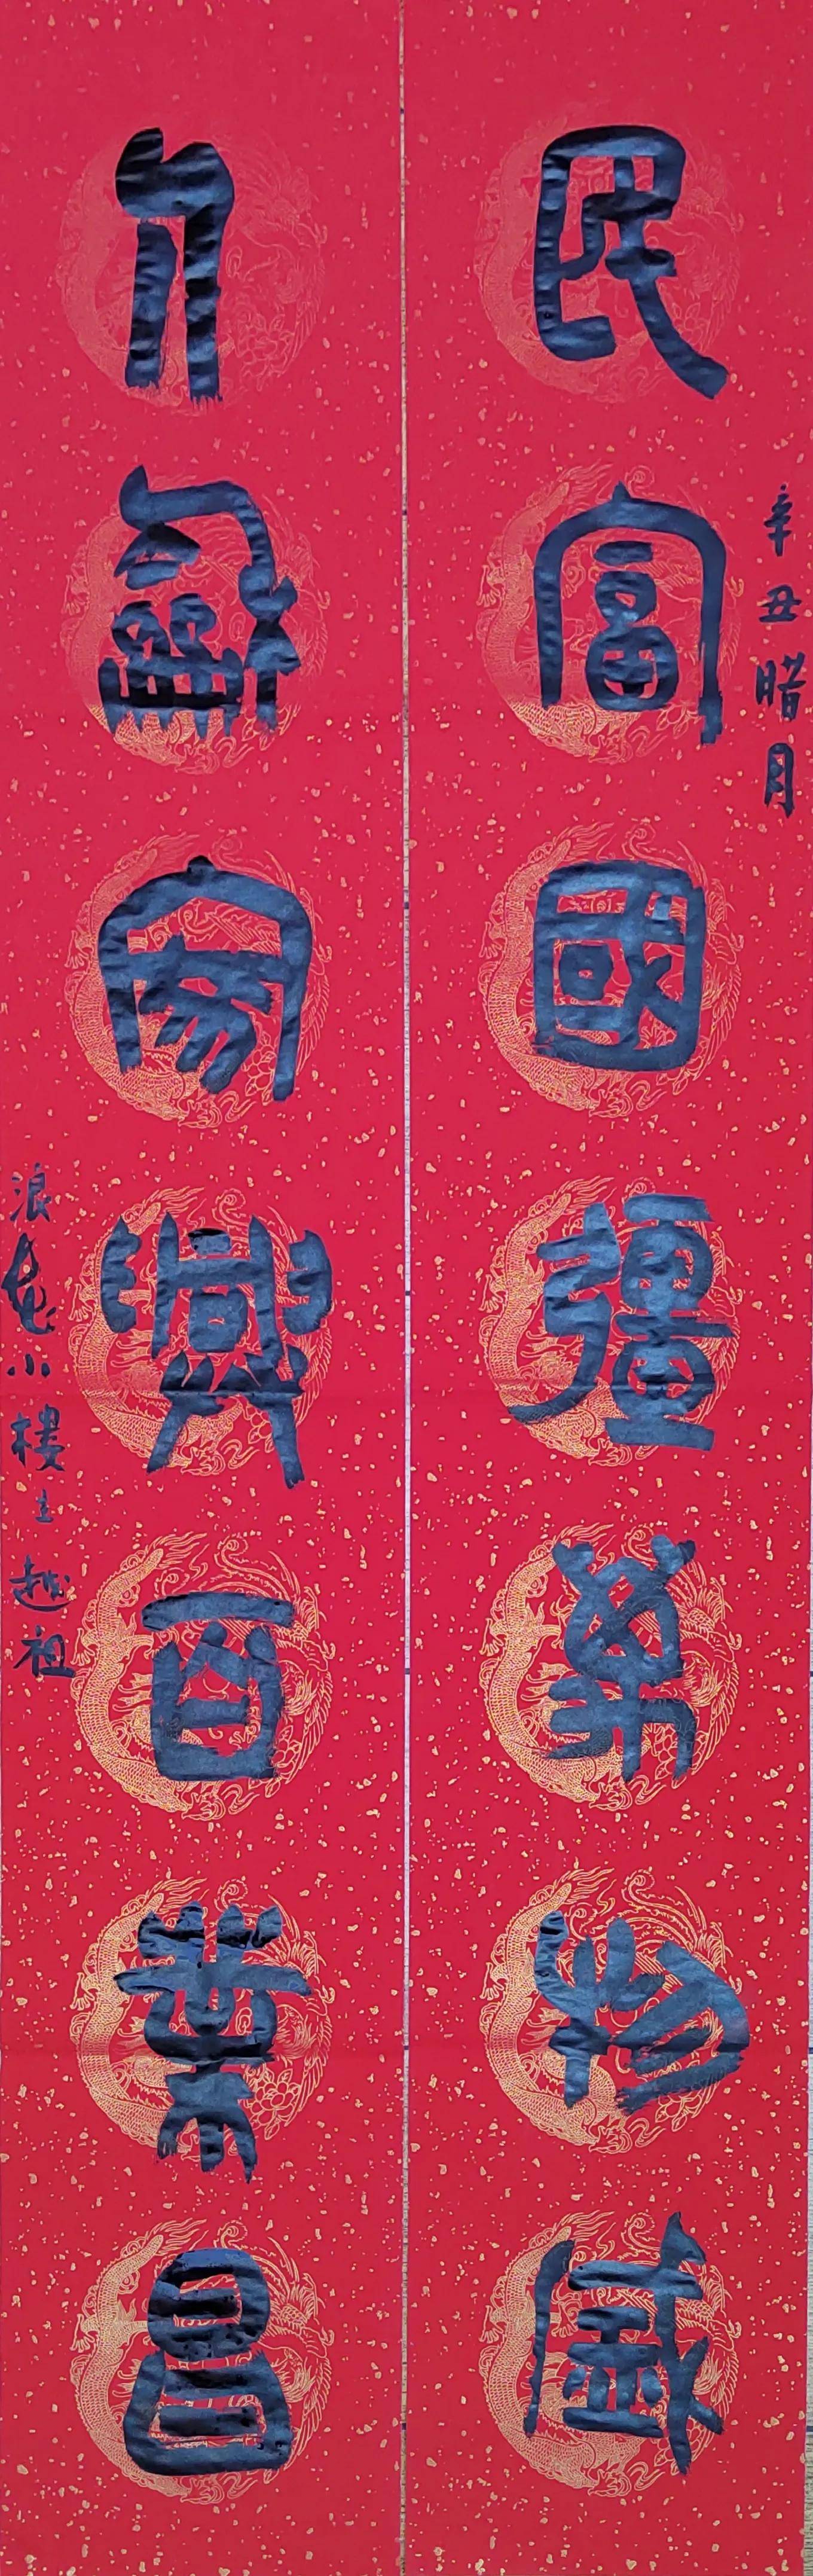 辛丑腊月
民富國彊萬物盛
人龢家興百業昌
浪小樓主越祖